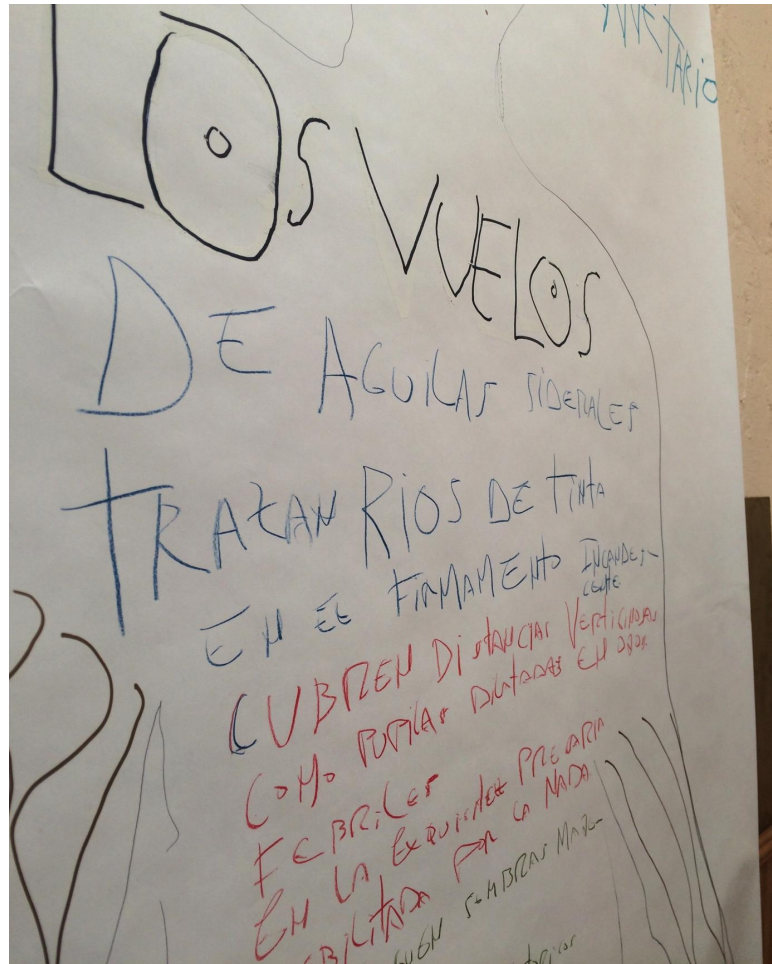 LOS VUELOS
DE AGUILAS SIDERALES
TRAZAN RIOS DE TINTA
EN EL FIRMAMENTO INCANDES-
CENTE
CUBREN DISTANCIAS VERTIGINOSAS
COMO PUPILAS DILATADAS EN
FEBRILES
EN LA EXQUISITEZ PRECARIA
POR LA NADA
SOMBRAS